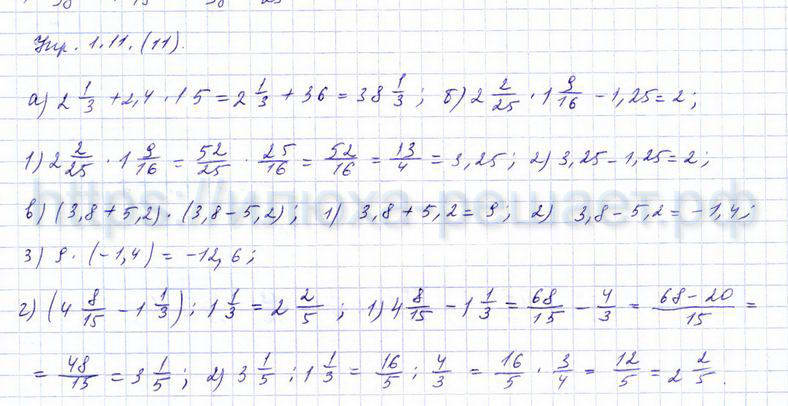 Упр. 1.11.(11).
а) 2 1/3 + 2,4 · 15 = 2 1/3 + 36 = 38 1/3; б) 2 2/25 · 1 9/16 - 1,25 = 2;
1) 2 2/25 · 1 9/16 = 52/25 · 25/16 = 52/16 = 13/4 = 3,25; 2) 3,25 - 1,25 = 2;
https://илюха-решает.рф
в) (3,8 + 5,2) · (3,8 - 5,2); 1) 3,8 + 5,2 = 9; 2) 3,8 - 5,2 = -1,4;
3) 9 · (-1,4) = -12,6;
г) (4 8/15 - 1 1/3) : 1 1/3 = 2 2/5; 1) 4 8/15 - 1 1/3 = 68/15 - 4/3 = 68-20/15 =
= 48/15 = 3 1/5; 2) 3 1/5 : 1 1/3 = 16/5 : 4/3 = 16/5 · 3/4 = 12/5 = 2 2/5.